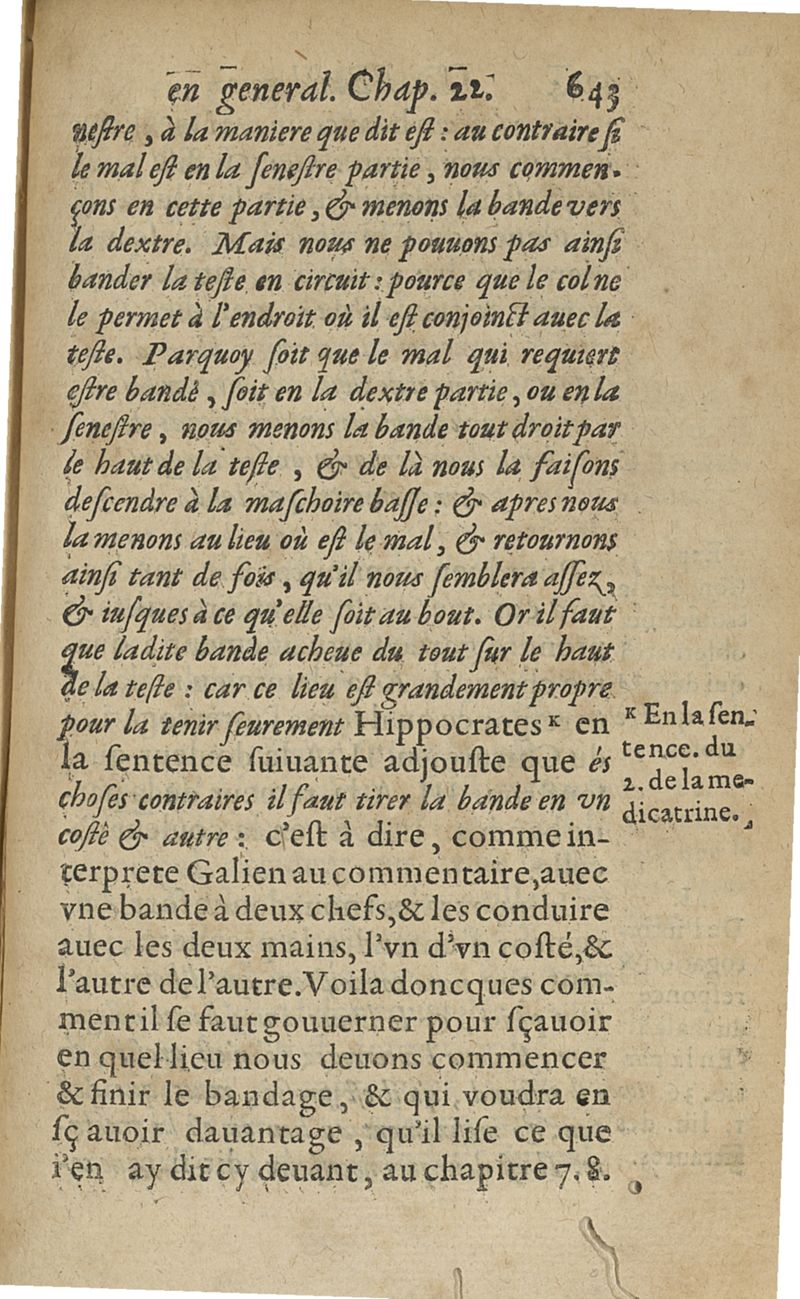 en general. Chap. 22. 643
neſtre, à la maniere que dit eſt : au contraire ſi
le mal eſt en la ſeneſtre partie, nous commen-
çons en cette partie, & menons la bande vers
la dextre. Mais nous ne pouuons pas ainſi
bander la teſte en circuit : pource que le col ne
le permet à l'endroit où il eſt conjoinct auec la
teſte. Parquoy ſoit que le mal qui requiert
eſtre bandé, ſoit en la dextre partie, ou en la
ſeneſtre, nous menons la bande tout droit par
le haut de la teſte, & de là nous la faiſons
deſcendre à la maſchoire baſſe : & apres nous
la menons au lieu où eſt le mal, & retournons
ainſi tant de fois, qu'il nous ſemblera aſſez,
& iuſques à ce qu'elle ſoit au bout. Or il faut
que ladite bande acheue du tout ſur le haut
de la teſte : car ce lieu eſt grandement propre
pour la tenir ſeurement Hippocrates ᴷ en
la ſentence ſuiuante adjouſte que és
choſes contraires il faut tirer la bande en vn
coſtè & autre : c'eſt à dire, comme in-
terprete Galien au commentaire, auec
vne bande à deux chefs, & les conduire
auec les deux mains, l'vn d'vn coſté, &
l'autre de l'autre. Voila doncques com-
ment il ſe faut gouuerner pour ſçauoir
en quel lieu nous deuons commencer
& finir le bandage, & qui voudra en
ſçauoir dauantage, qu'il liſe ce que
i'en ay dit cy deuant, au chapitre 7. 8.
ᴷ En la ſen-
tence. du
2. de la me-
dicatrine.